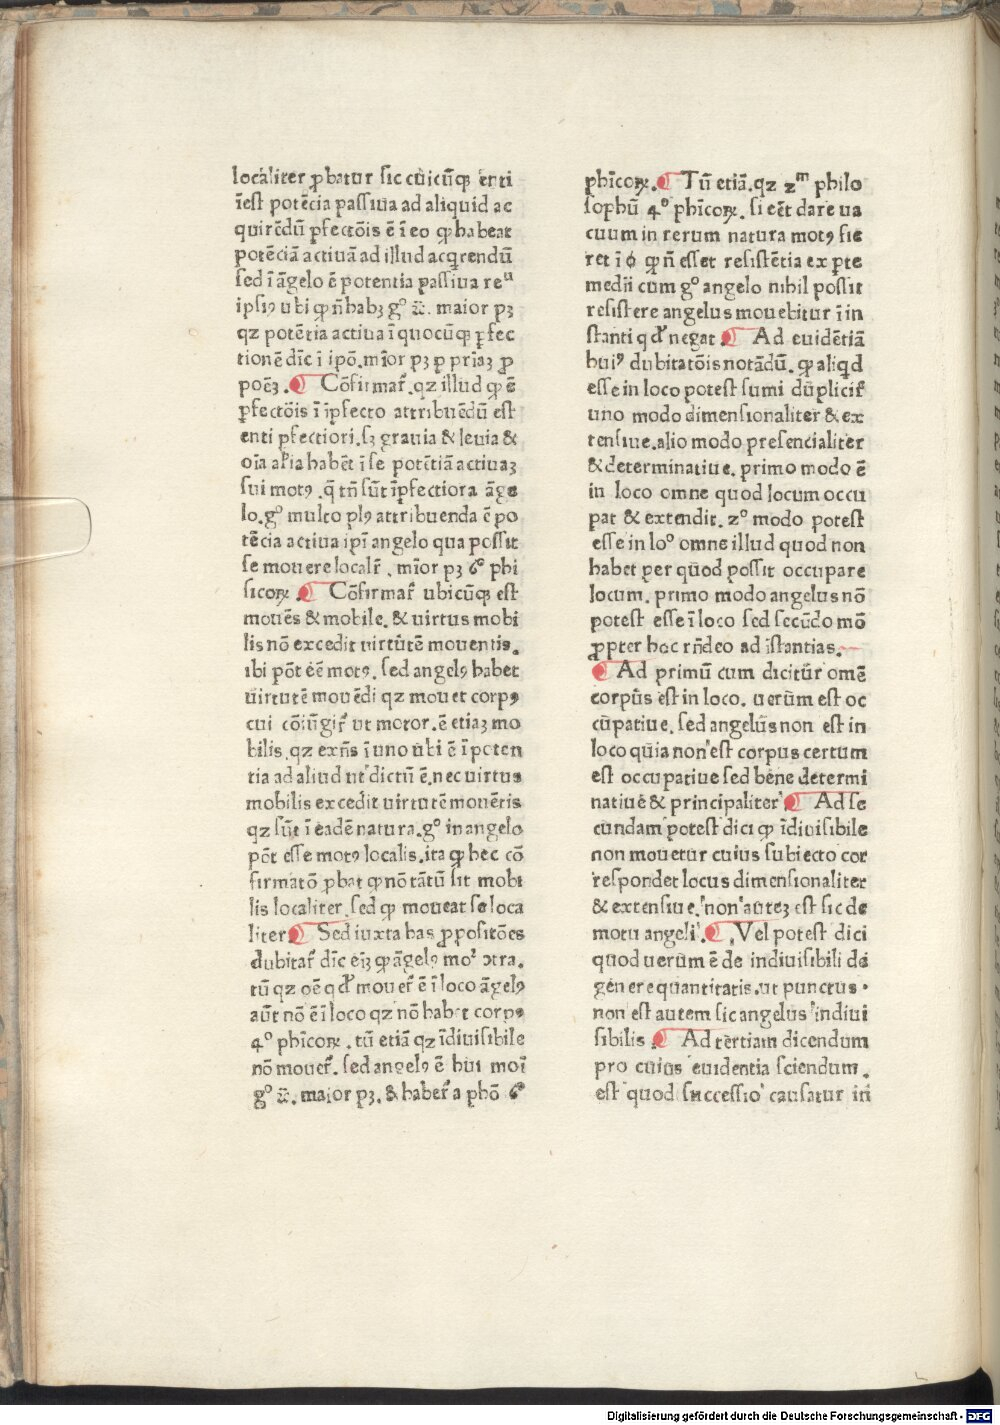 localiter ꝓbatur sic cuicūqꝫ enti
īest potēcia passiua ad aliquid ac
quirēdū ꝑfectōis ē ī eo ꝙ habeat
potēciā actiuā ad illud acq̄rendū
sed ī āgelo ē potentia passiua reᵘ
ipsiꝰ ubi ꝙ n̄ habꝫ gͦ maior pꝫ
qz potētia actiua ī quocūqꝫ ꝑfec
tionē dīc ī ipō. mīor pꝫ ꝑ pīaꝫ ꝓ
poēꝫ. Cōfirmat̄. qz illud ꝙ ē
ꝑfectōis ī īꝑfecto attribuēdū est
enti ꝑfectiori. sꝫ grauia & leuia &
oīa alia habēt ī se potētiā actiuaꝫ
sui motꝰ. q̄ tn̄ sūt īꝑfectiora āge
lo. gͦ multo plꝰ attribuenda ē po
tēcia actiua ipī angelo qua possit
se mouere localiꝉ. mīor pꝫ 6ͦ phi
sicoꝝ. Cōfirmat̄ ubicūqꝫ est
mouēs & mobile. & uirtus mobi
lis nō excedit uirtutē mouentis.
ibi pōt ēē motꝰ. sed angelꝰ habet
uirtutē mouēdi qz mouet corpꝰ
cui cōiūgit̄ ut motor. ē etiaꝫ mo
bilis. qz exn̄s ī uno ubi ē ī poten
tia ad aliud ut dictū ē. nec uirtus
mobilis excedit uirtutē mouētis
qz sūt ī eadē natura. gͦ in angelo
pōt esse motꝰ localis. ita ꝙ hec cō
firmatō ꝓbat ꝙ nō tātū sit mobi
lis localiter. sed ꝙ moueat se loca
liter Sed iuxta has ꝓpositōes
dubitat̄ dīc eīꝫ ꝙ āgelꝰ moꝰ ↄtra.
tū qz oē qd̄ mouet̄ ē ī loco āgelꝰ
aūt nō ē ī loco qz nō habet corpꝰ
4ͦ phīcoꝝ. tū etiā qz īdiuisibile
nō mouet̄. sed angelꝰ ē hui moī
gͦ maior pꝫ. & habet̄ a phō 6ͦ
phīcoꝝ. Tū etiā. qz 2ᵐ philo
sophū 4ͦ phīcoꝝ. si eēt dare ua
cuum in rerum natura motꝰ fie
ret ī ꝙ n̄ esset resistētia ex ꝑte
medii cum gͦ angelo nihil possit
resistere angelus mouebitur ī in
stanti qd̄ negat Ad euidētiā
huiꝰ dubitatōis notādū. ꝙ aliqd
esse in loco potest sumi dūpliciꝉ
uno modo dimensionaliter & ex
tensiue. alio modo presencialiter
& determinatiue. primo modo ē
in loco omne quod locum occu
pat & extendit. 2ͦ modo potest
esse in loͦ omne illud quod non
habet per quod possit occupare
locum. primo modo angelus nō
potest esse ī loco sed secūdo mō
ꝓpter hoc rn̄deo ad īstantias.
Ad primū cum dicitur omē
corpus est in loco. uerum est oc
cūpatiue. sed angelus non est in
loco quia non est corpus certum
est occupatiue sed bene determi
natiue & principaliter Ad se
cundam potest dici ꝙ īdiuisibile
non mouetur cuius subiecto cor
respondet locus dimensionaliter
& extensiue. non auteꝫ est sic de
motu angeli. Vel potest dici
quod uerum ē de indiuisibili de
genere quantitatis. ut punctus.
non est autem sic angelus indiui
sibilis. Ad tertiam dicendum
pro cuius euidentia sciendum.
est quod successio causatur in
Digitalisierung gefördert durch die Deutsche Forschungsgemeinschaft - DFG